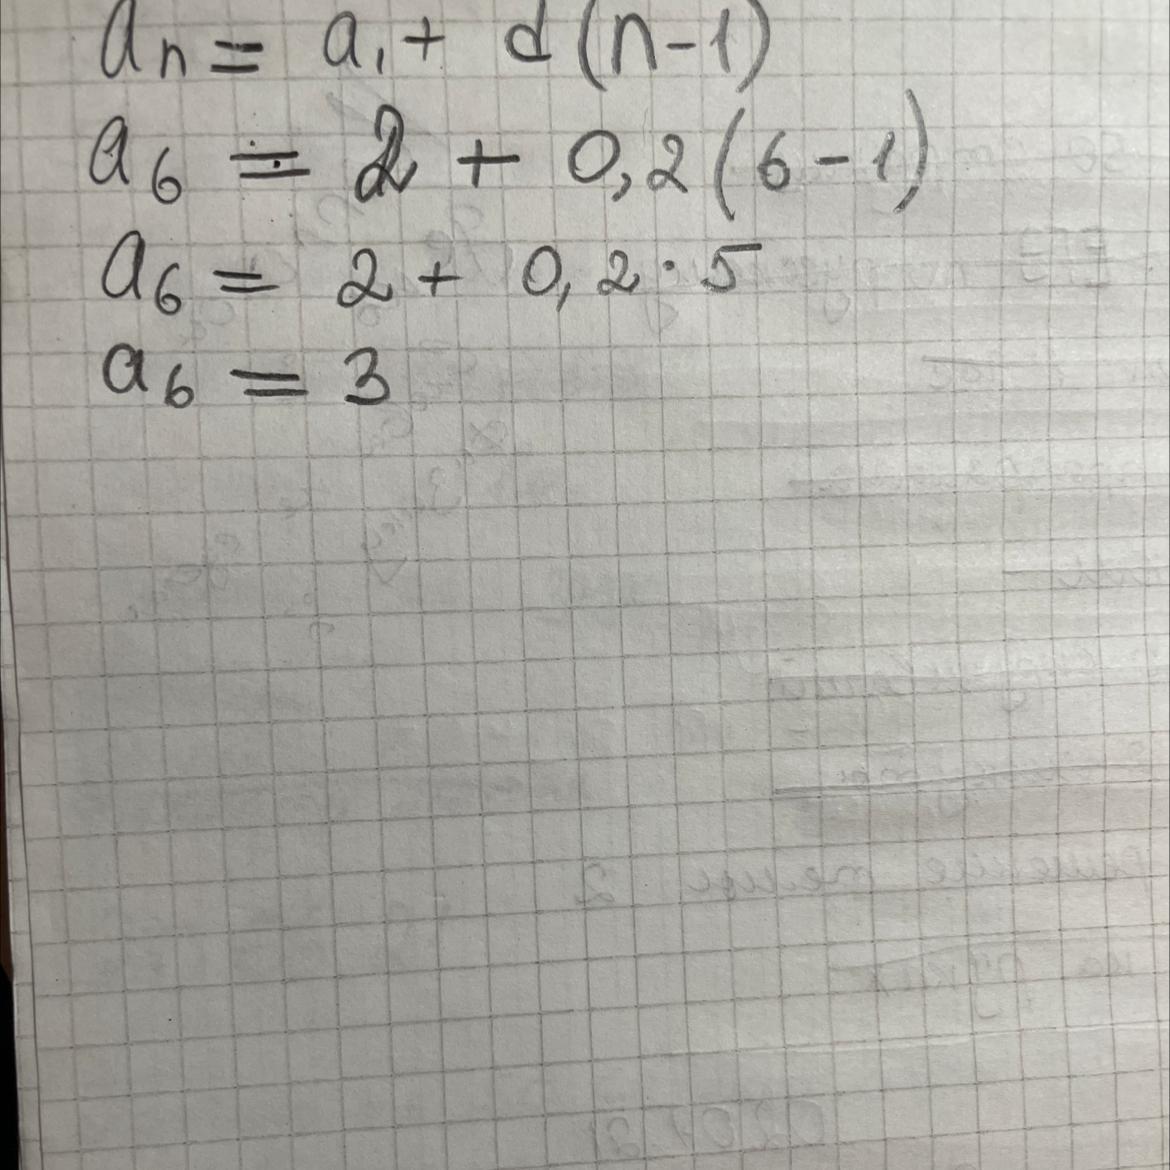 an = a1 + d(n-1)
a6 = 2 + 0,2(6-1)
a6 = 2 + 0,2·5
a6 = 3